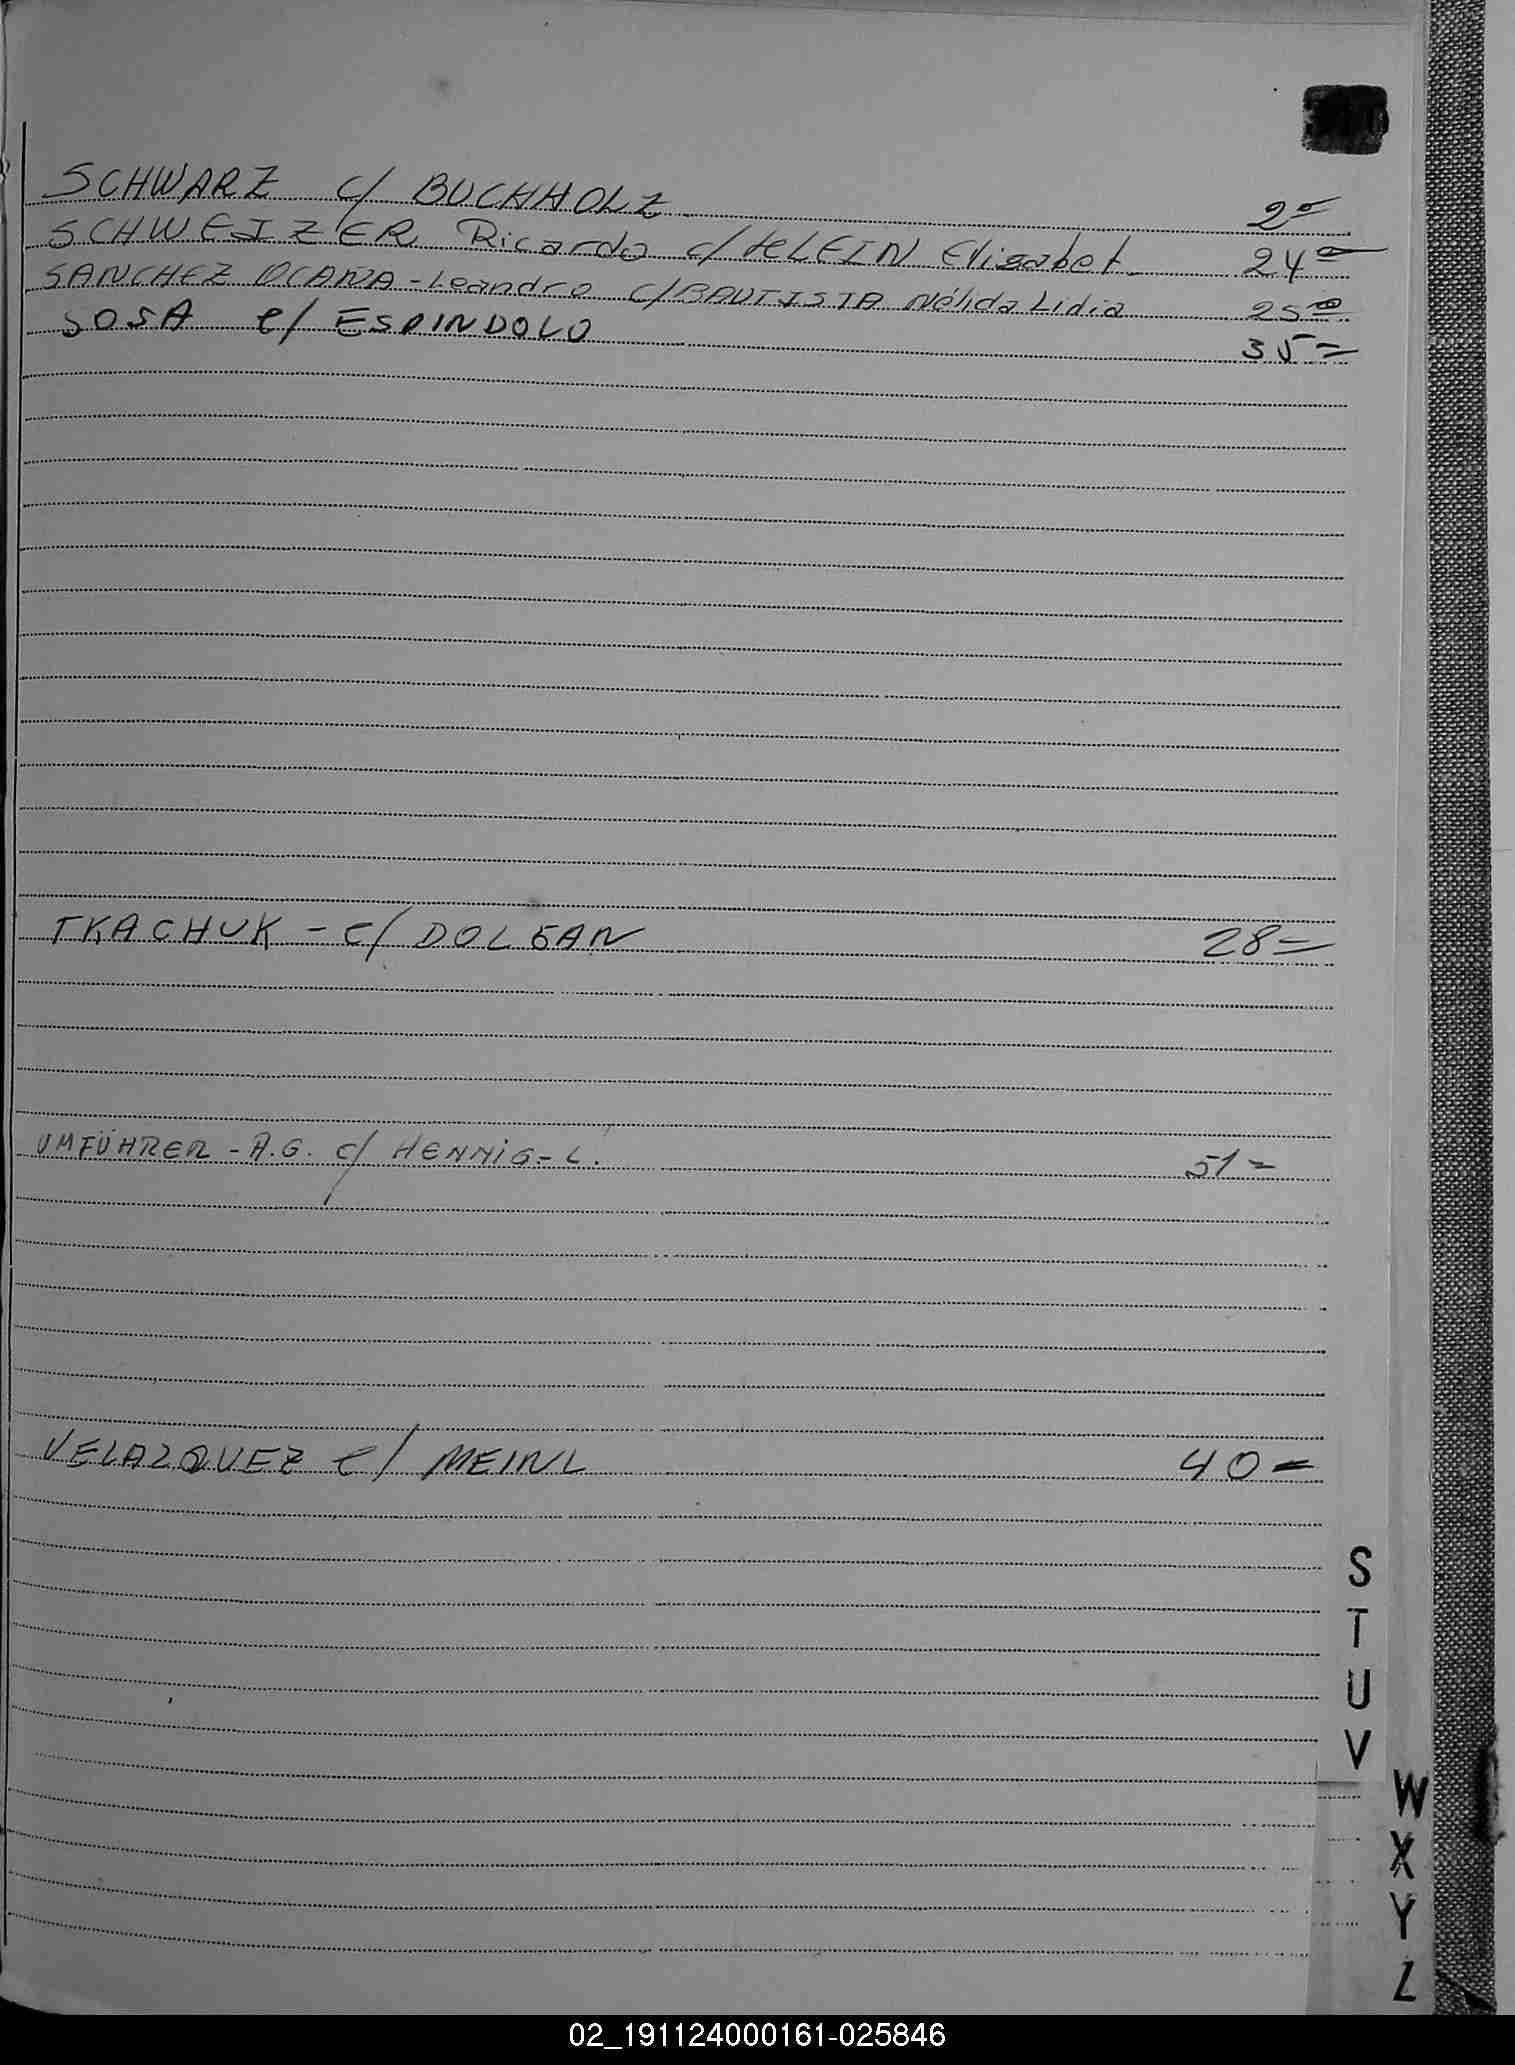 SCHWARZ c/ BUCHHOLZ 2=
SCHWEIZER Ricardo c/ KLEIN Elisabet 24=
SANCHEZ OCAÑA - Leandro c/ BAUTISTA Nélida Lidia 25=
SOSA c/ ESPINDOLO 35=
TKACHUK - c/ DOLGAN 28=
UMFÜHRER - A.G. c/ HENNiG - L. 51=
VELAZQUEZ c/ MEINL 40=
S
T
U
V
W
X
Y
Z
02_191124000161-025846